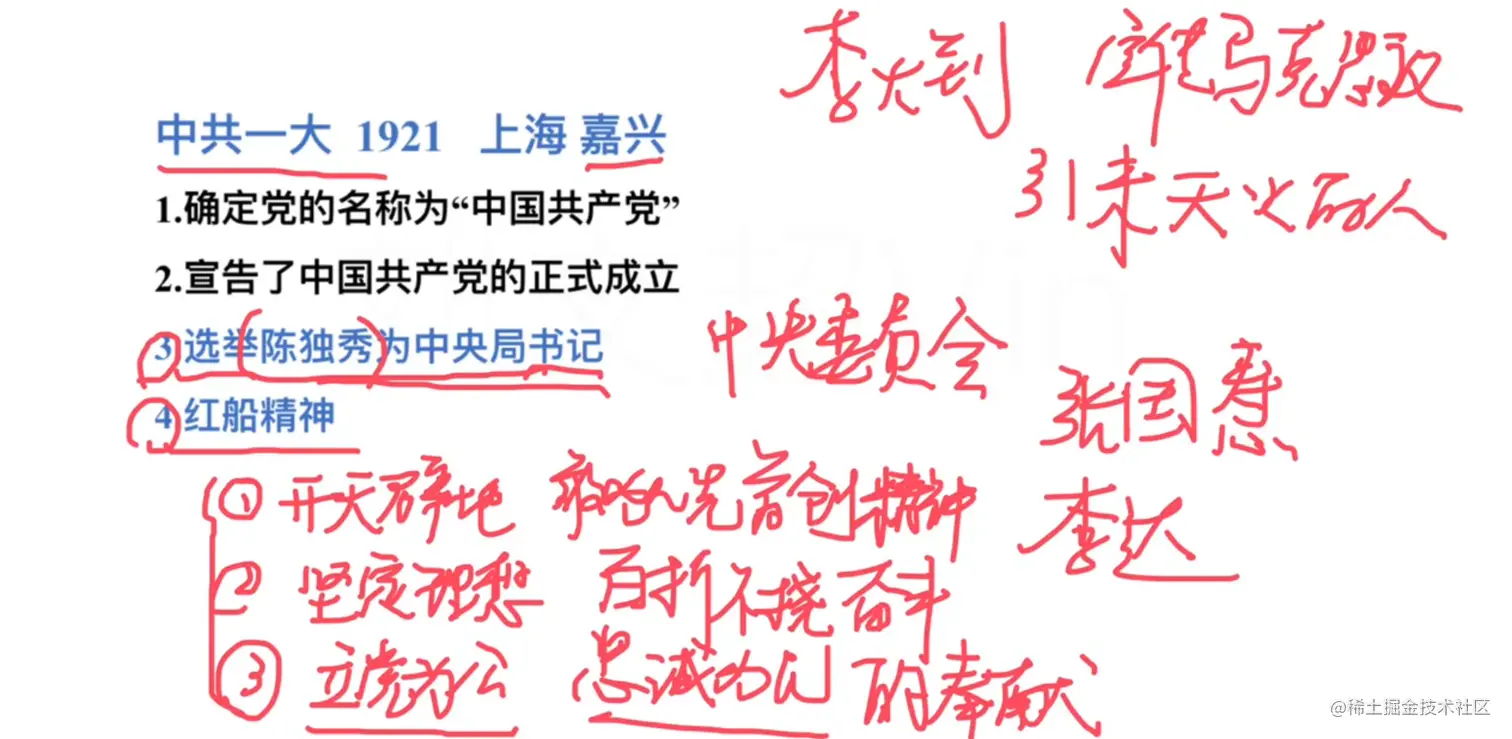 李大钊 宣传马克思主义
引来天火的人
中共一大 1921 上海 嘉兴
1.确定党的名称为“中国共产党”
2.宣告了中国共产党的正式成立
3.选举陈独秀为中央局书记
中央委员会
张国焘
4.红船精神
李达
① 开天辟地 敢为人先首创精神
② 坚定理想 百折不挠奋斗
③ 立党为公 忠诚为民的奉献
@稀土掘金技术社区